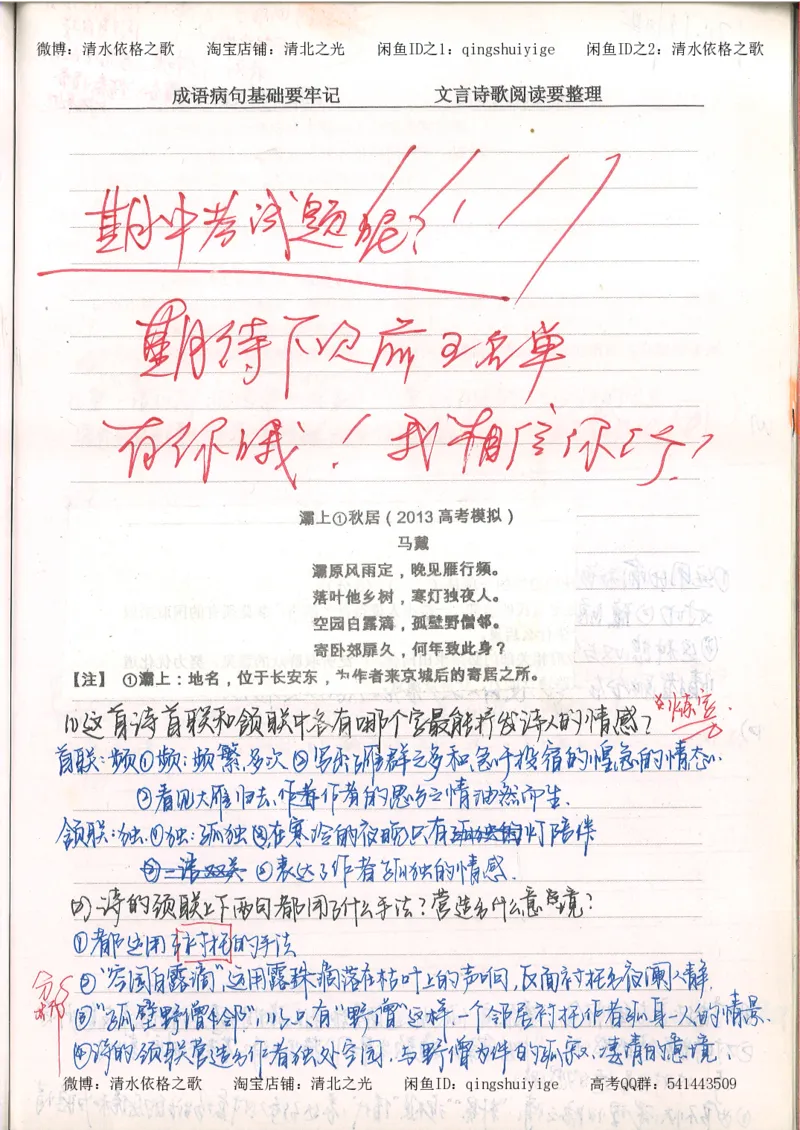 微博：清水依格之歌 淘宝店铺：清北之光 闲鱼ID之1：qingshuiyige 闲鱼ID之2：清水依格之歌
成语病句基础要牢记 文言诗歌阅读要整理
期中考试题呢？
期待下次前五名单
有你哦！我相信你行！
灞上①秋居（2013高考模拟）
马戴
灞原风雨定，晚见雁行频。
落叶他乡树，寒灯独夜人。
空园白露滴，孤壁野僧邻。
寄卧郊扉久，何年致此身？
【注】 ①灞上：地名，位于长安东，为作者来京城后的寄居之所。
(1)这首诗首联和颔联中各有哪个字最能抒发诗人的情感？
首联：频①频：频繁，多次②写出雁群之多和急于投宿的惶急的情态。
③看见大雁归去，作者的思乡之情油然而生。
颔联：独.①独：孤独②在寒冷的夜晚只有孤独的灯陪伴
③表达了作者孤独的情感.
(2)诗的颈联上下两句都用了什么手法？营造出什么意境？
①都运用衬托的手法
②"空园白露滴"运用露珠滴落在枯叶上的声响，反面衬托出夜阑人静.
分析
③"孤壁野僧邻"，以只有"野僧"这样一个邻居衬托作者孤身一人的情景.
④诗的颈联营造出作者独处空园，与野僧为伴的孤寂、凄清的意境.
微博：清水依格之歌 淘宝店铺：清北之光 闲鱼ID：qingshuiyige 高考QQ群：541443509